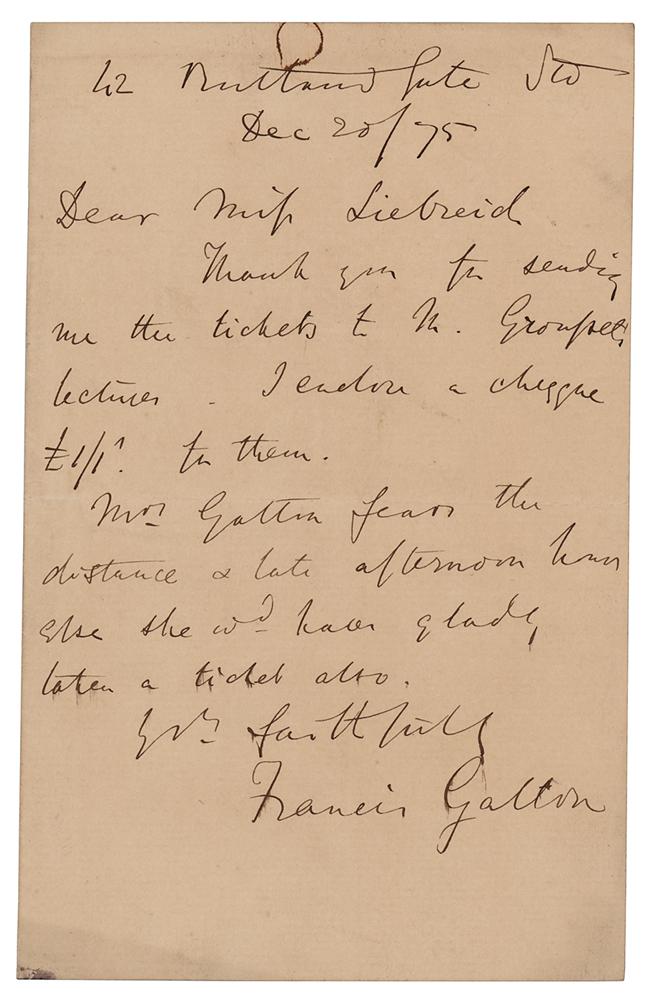 42 Rutland Gate SW
Dec 20/75
Dear Miss Liebreich
Thank you for sending
me the tickets to M.
lectures. I enclose a cheque
£1/1s. for them.
Mrs Galton fears the
distance & late afternoon hour
else she wd have gladly
taken a ticket also.
Yrs faithfully
Francis Galton